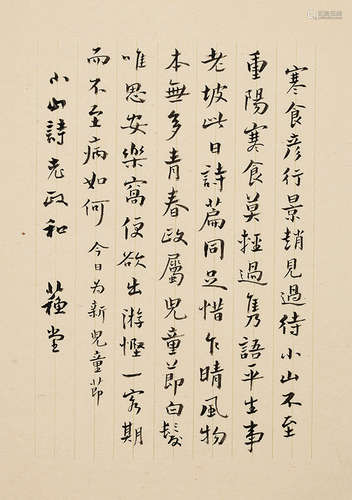 寒食彦行景趙見過待小山不至
重陽寒食莫輕過雋語平生事
老坡此日詩篇同足惜乍晴風物
本無多青春政屬兒童節白髮
唯思安樂窩便欲出游慳一客期
而不至病如何 今日為新兒童節
小山詩老政和 蘓堂